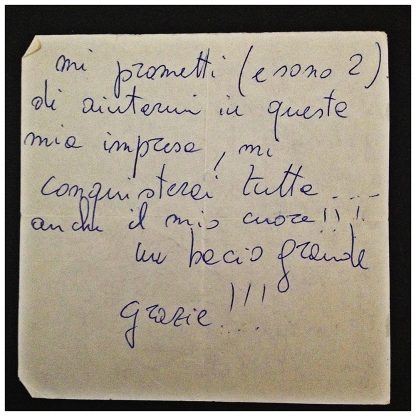 mi prometti (e sono 2)
di aiutarmi in questa
mia impresa, mi
conquisterai tutta....
anche il mio cuore!!!
un bacio grande
grazie!!!